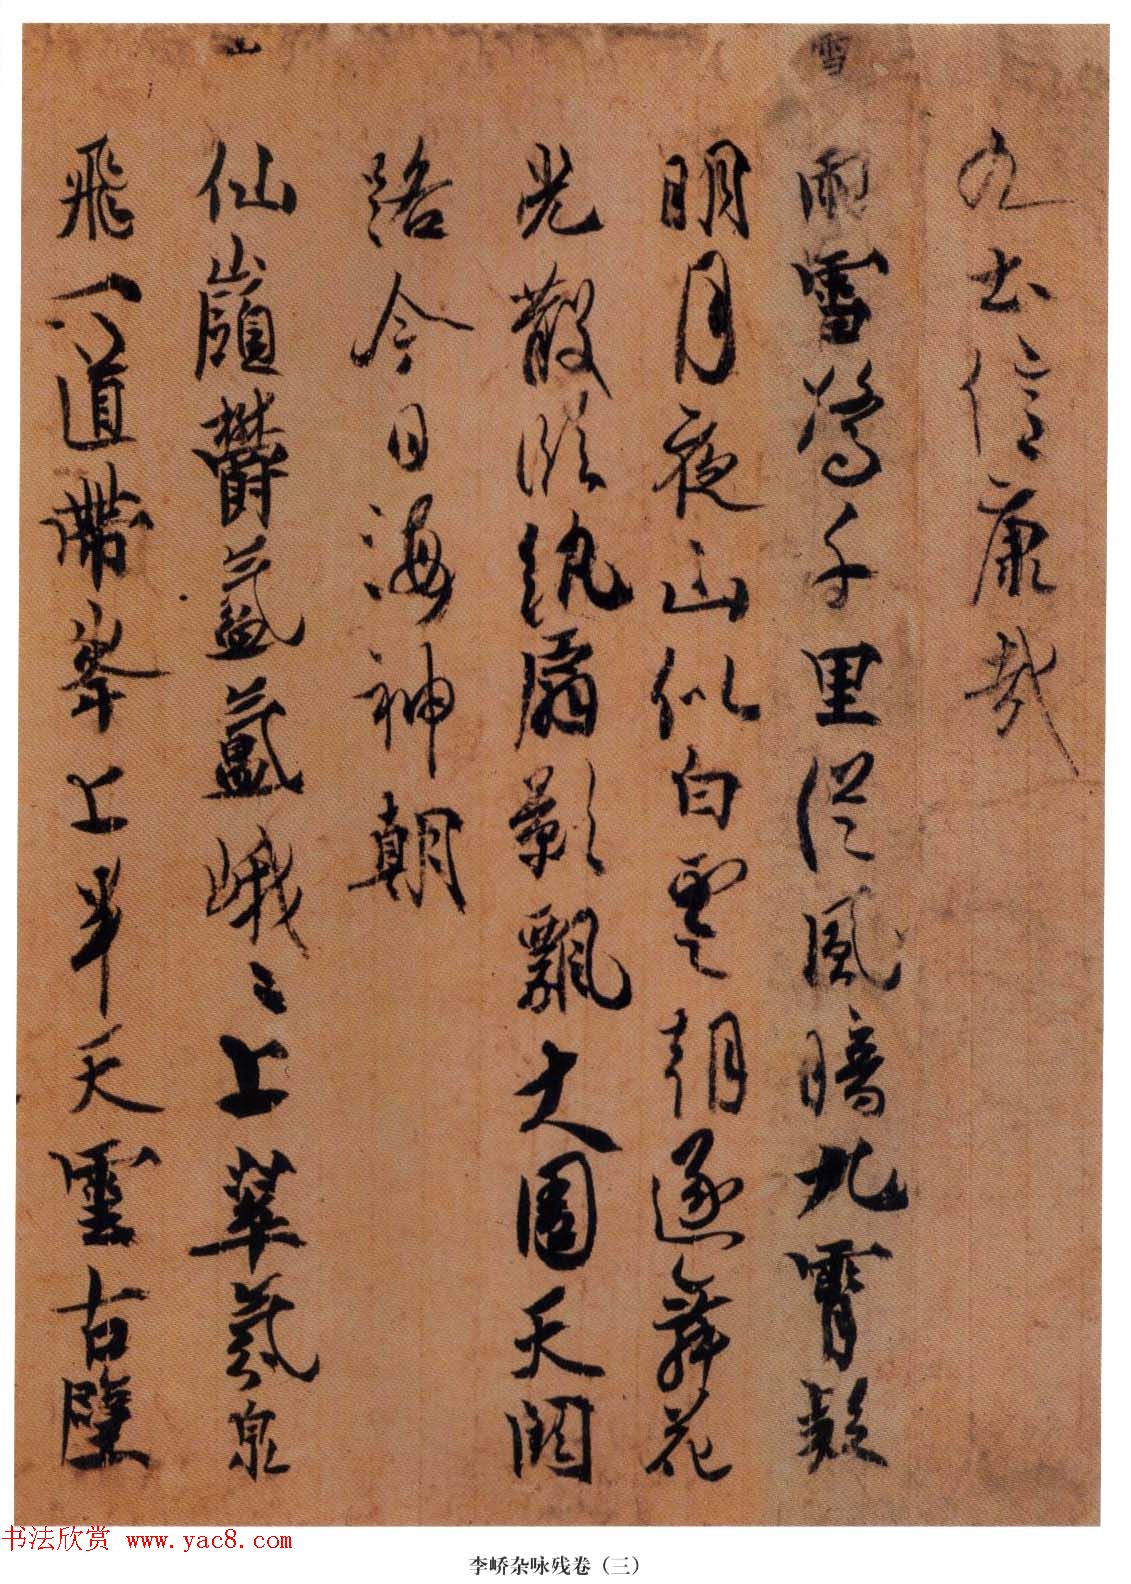 九土信康哉
雪
雨雪驚千里從風暗九霄疑
明月夜山似白雲朝逐舞花
光散臨紈扇影飄大周天闕
路今日海神朝
山
仙嶺鬱氤氳峨〻上翠氛泉
飛一道帶峯上半天雲古壁
书法欣赏 www.yac8.com
李峤杂咏残卷（三）